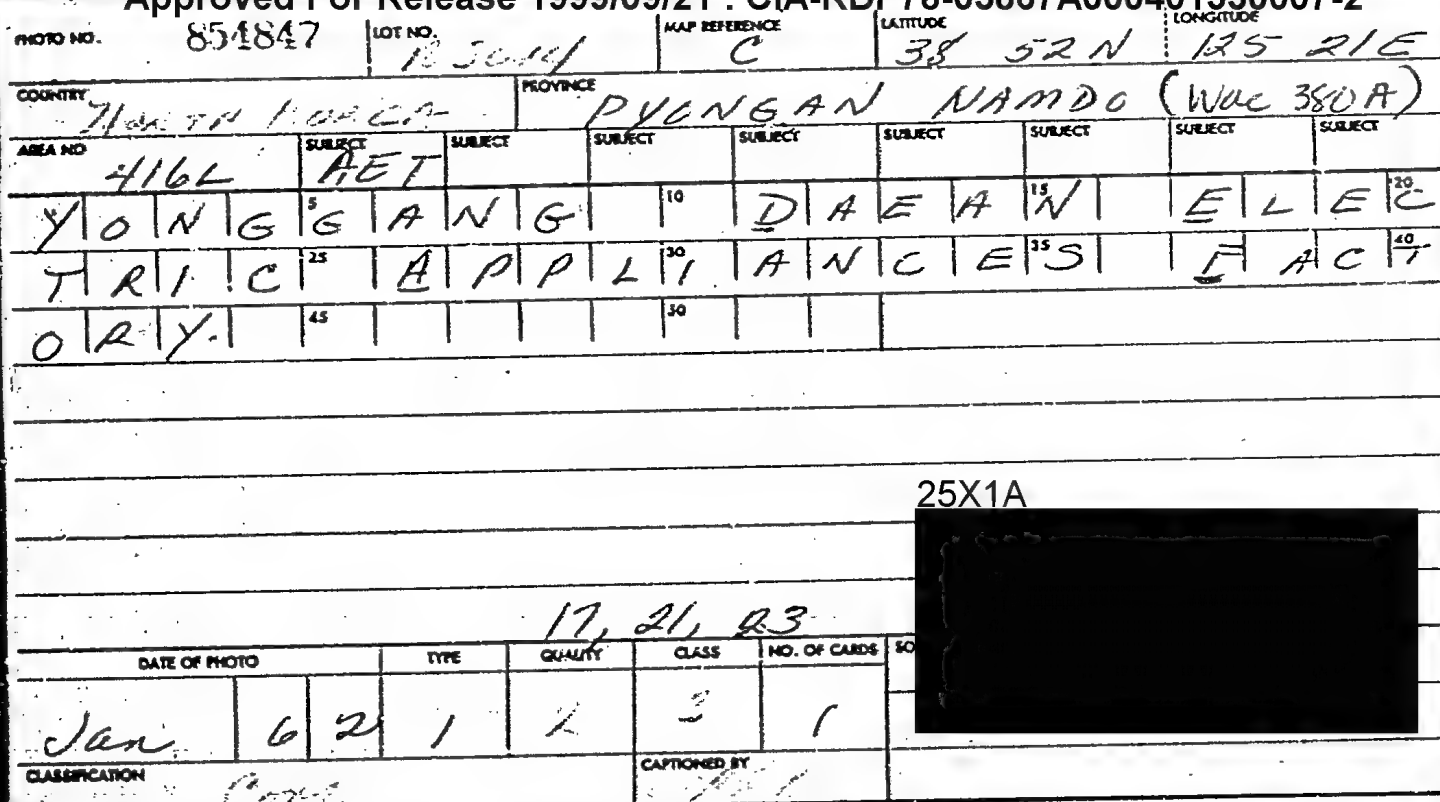 Approved For Release 1999/09/21 : CIA-RDP78-03867A000401330007-2
PHOTO NO. 854847 LOT NO. MAP REFERENCE C LATITUDE 38 52 N LONGITUDE 125 21 E
COUNTRY North Korea PROVINCE PYONGAN NAMDO (Wac 380A)
AREA NO 416L SUBJECT AET SUBJECT SUBJECT SUBJECT SUBJECT SUBJECT SUBJECT SUBJECT
YONGGANG DAEAN ELEC
TRIC APPLIANCES FACT
ORY.
25X1A
17, 21, 23
DATE OF PHOTO TYPE QUALITY CLASS NO. OF CARDS SO
Jan 62 1 2 3 1
CLASSIFICATION CAPTIONED BY